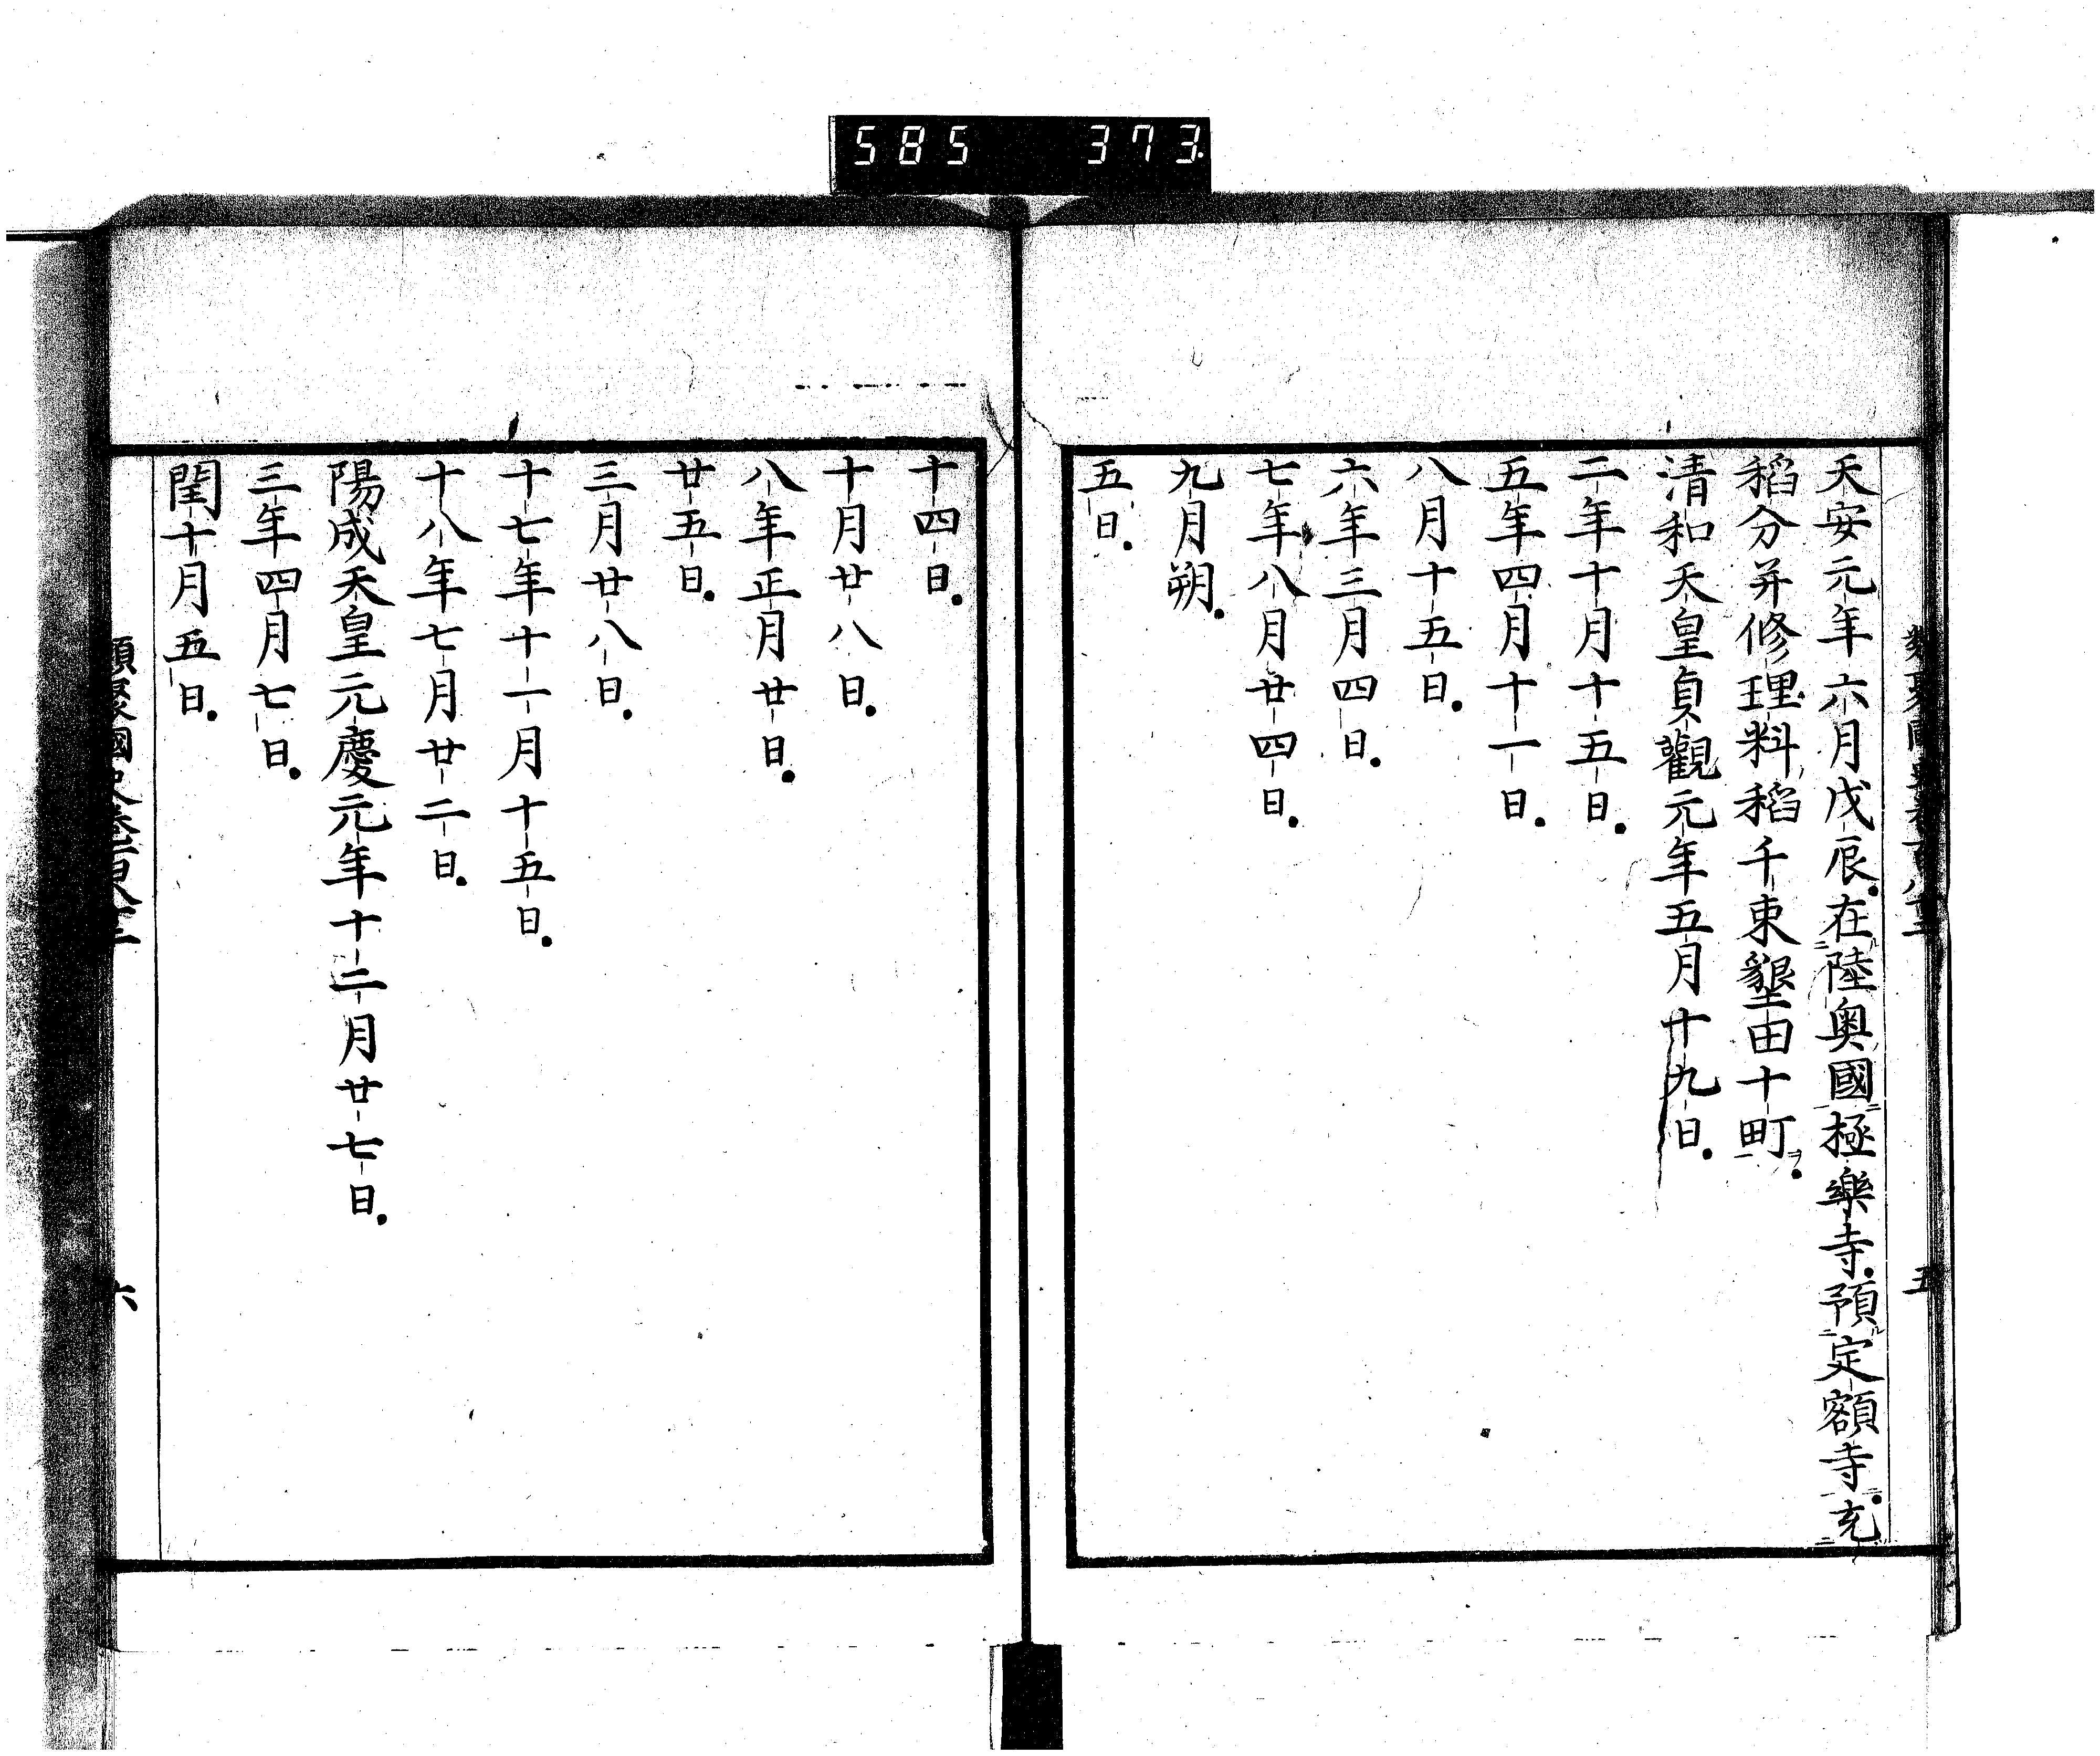 585 373
類聚國史卷百八十二 五
天安元年六月戊辰在陸奥國極樂寺預定額寺充
稻分并修理料稻千束墾田十町
清和天皇貞觀元年五月十九日
二年十月十五日
五年四月十一日
八月十五日
六年三月四日
七年八月廿四日
九月朔
五日
十四日
十月廿八日
八年正月廿日
廿五日
三月廿八日
十七年十一月十五日
十八年七月廿二日
陽成天皇元慶元年十二月廿七日
三年四月七日
閏十月五日
類聚國史卷百八十二 六